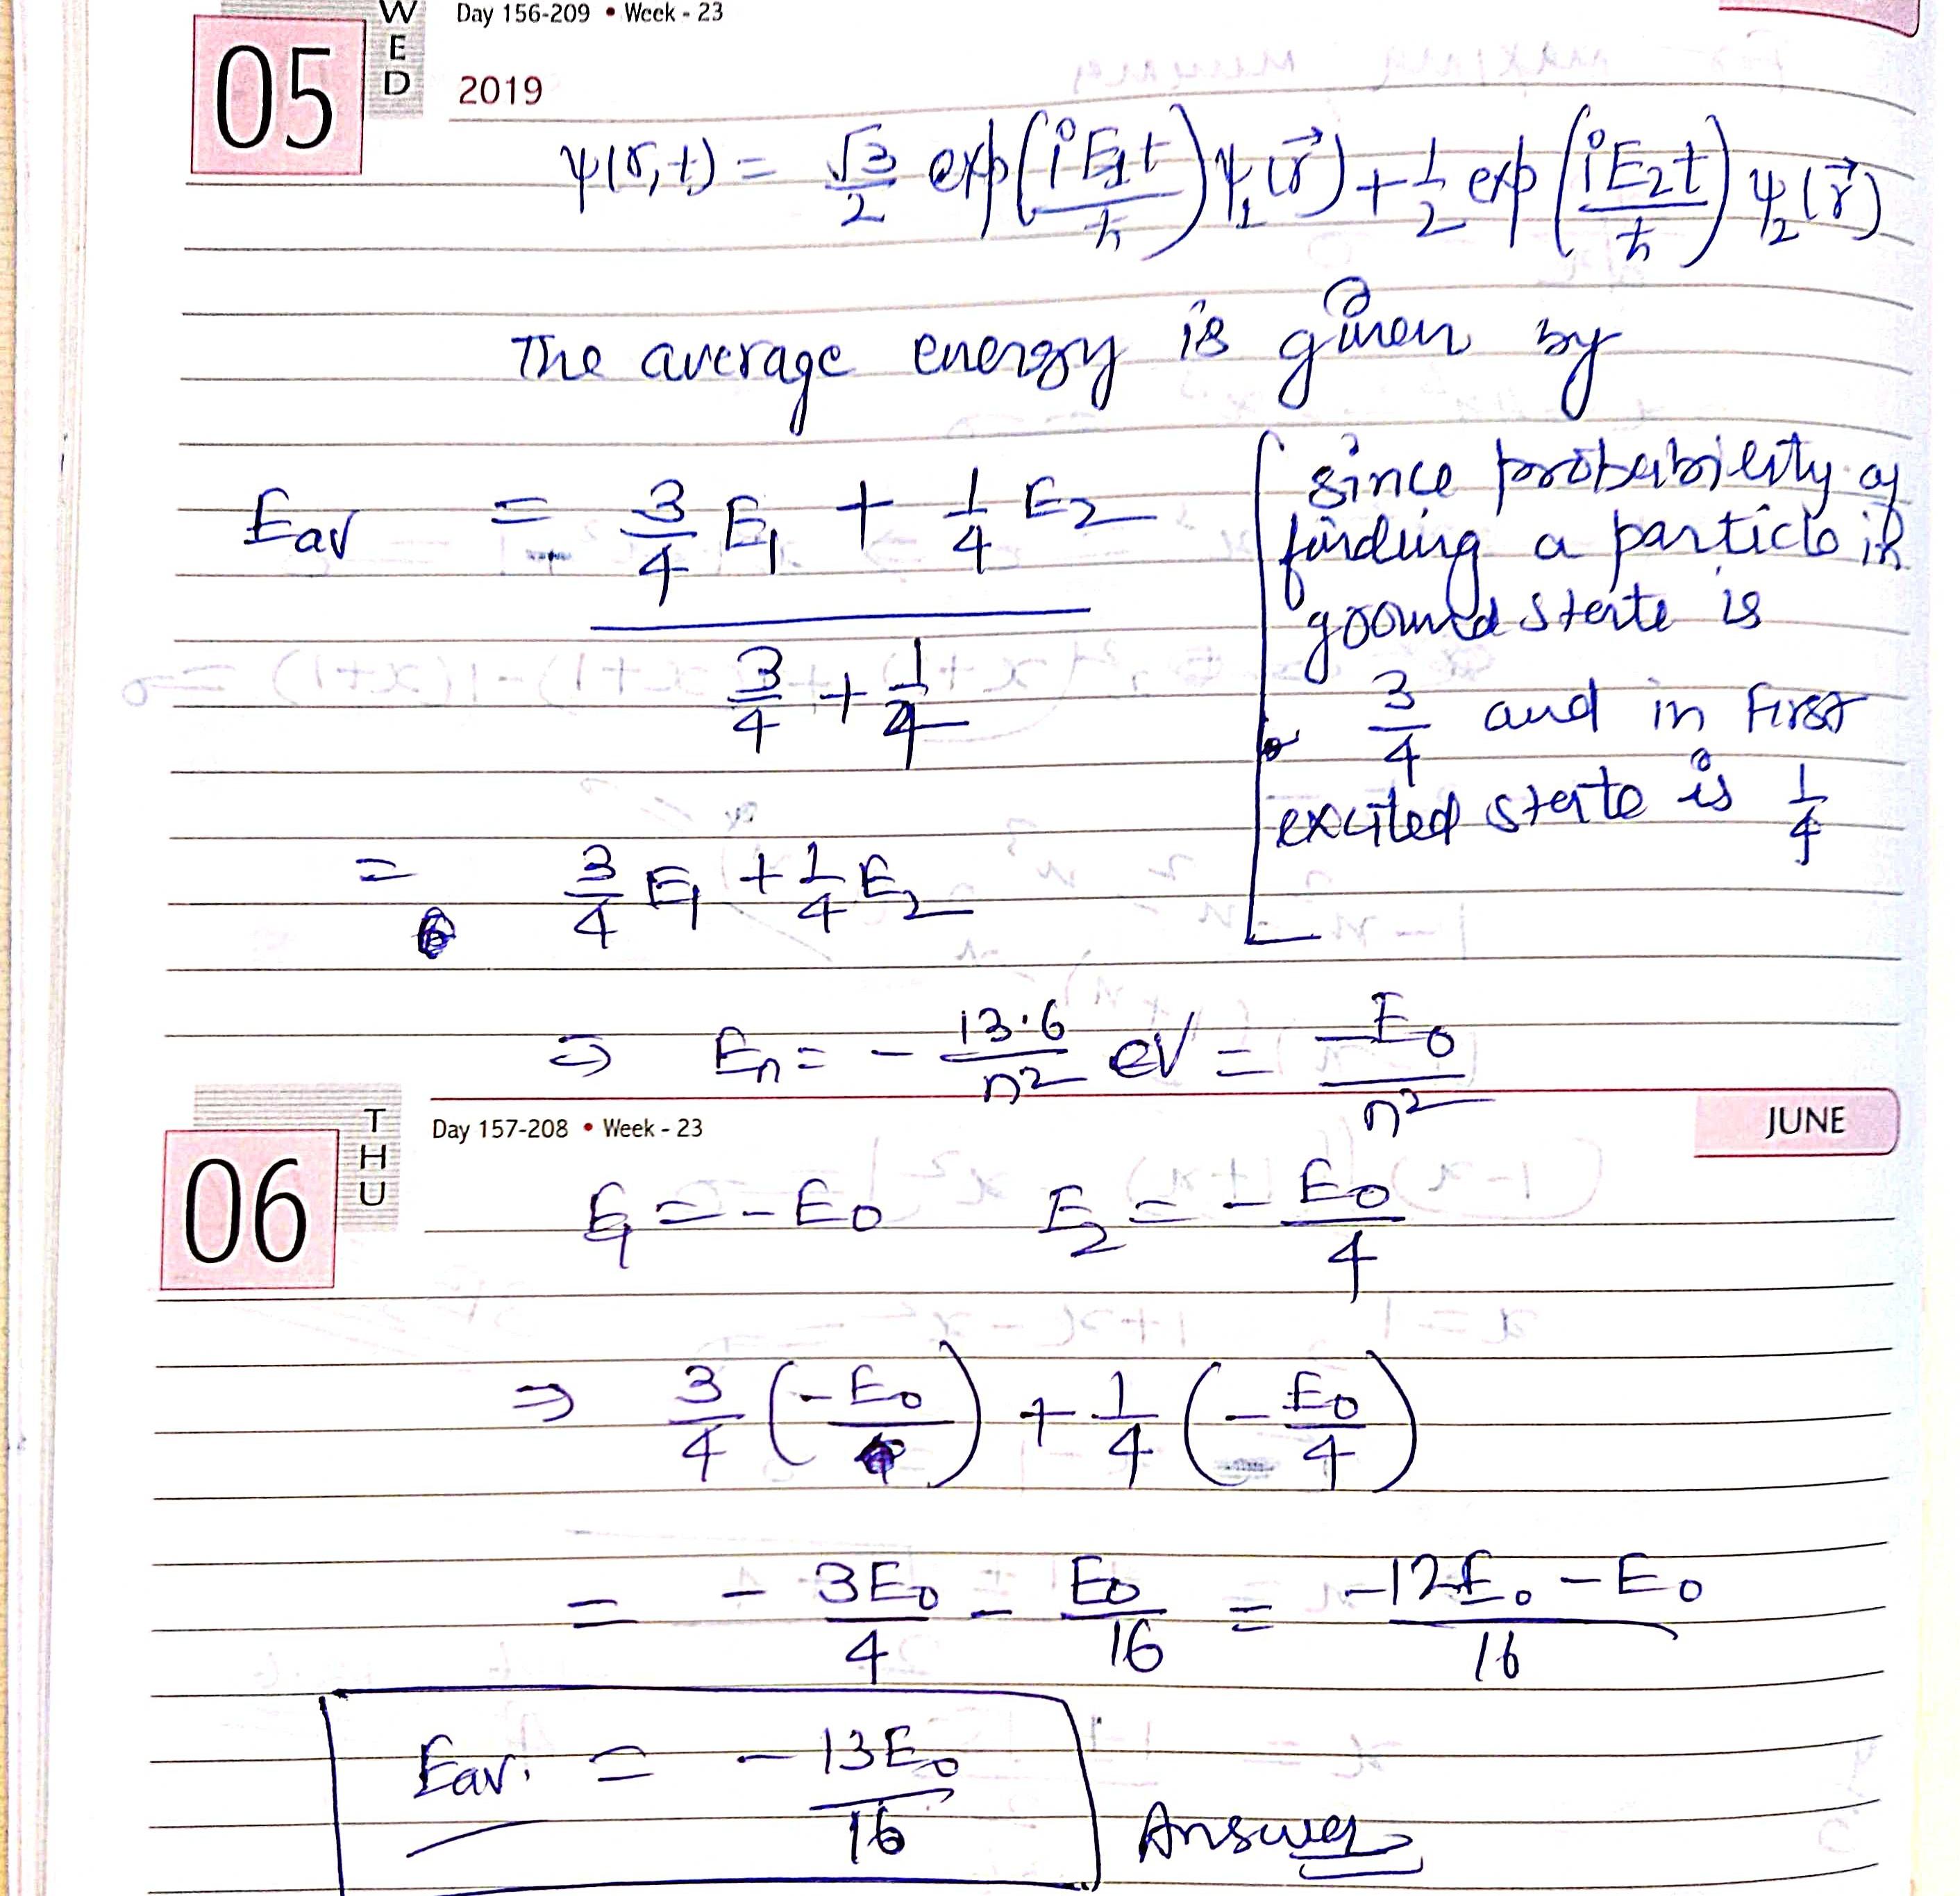 WED
Day 156-209 • Week - 23
05
2019
ψ(r,t) = √3/2 exp(iE₁t/ħ) ψ₁(r⃗) + 1/2 exp(iE₂t/ħ) ψ₂(r⃗)
The average energy is given by
Eav = (3/4 E₁ + 1/4 E₂) / (3/4 + 1/4)
[since probability of
finding a particle in
ground state is
3/4 and in first
excited state is 1/4
= 3/4 E₁ + 1/4 E₂
⇒ Eₙ = - 13.6/n² eV = -E₀/n²
THU
Day 157-208 • Week - 23
JUNE
06
E₁ = -E₀ E₂ = - E₀/4
⇒ 3/4 (-E₀) + 1/4 (- E₀/4)
= - 3E₀/4 - E₀/16 = (-12E₀ - E₀)/16
Eav. = - 13E₀/16 Answer